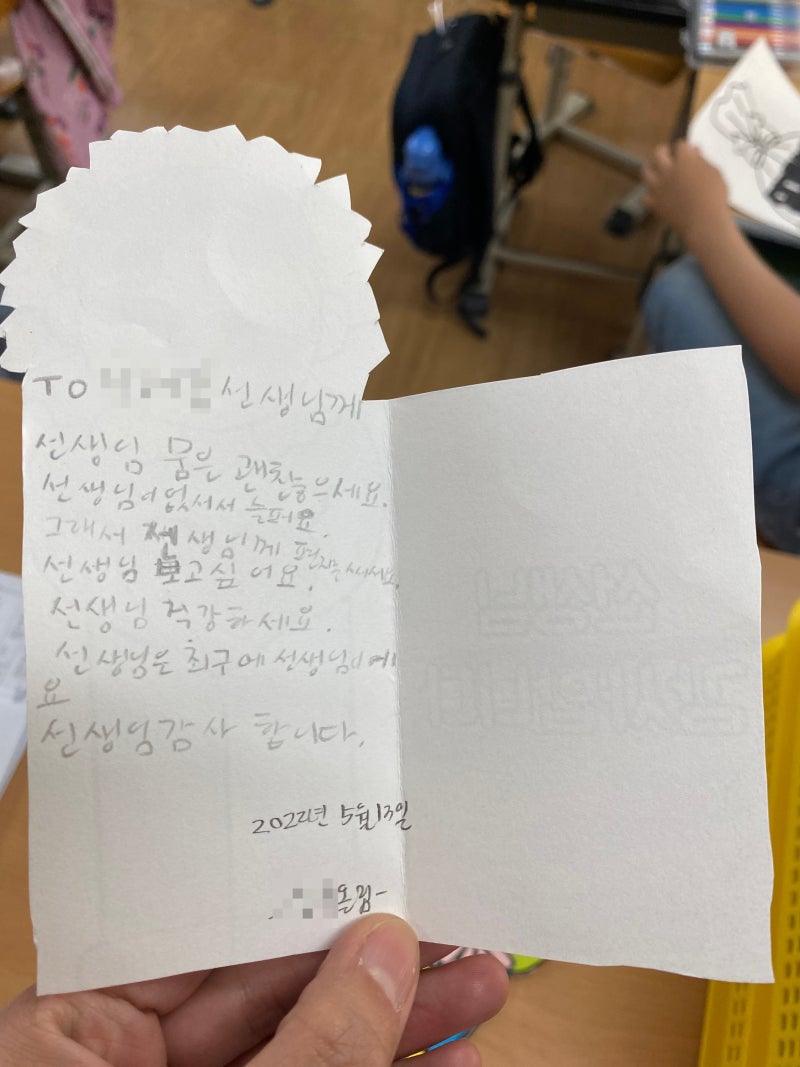 TO 선생님께
선생님 뭄은 괜찮으세요.
선생님이 없서서 슬퍼요.
그래서 선생님께
선생님 보고싶어요.
선생님 건강하세요.
선생님은 최구에 선생님이에
요
선생님감사 합니다.
2022년 5월13일
올림-
선생님
감사합니다